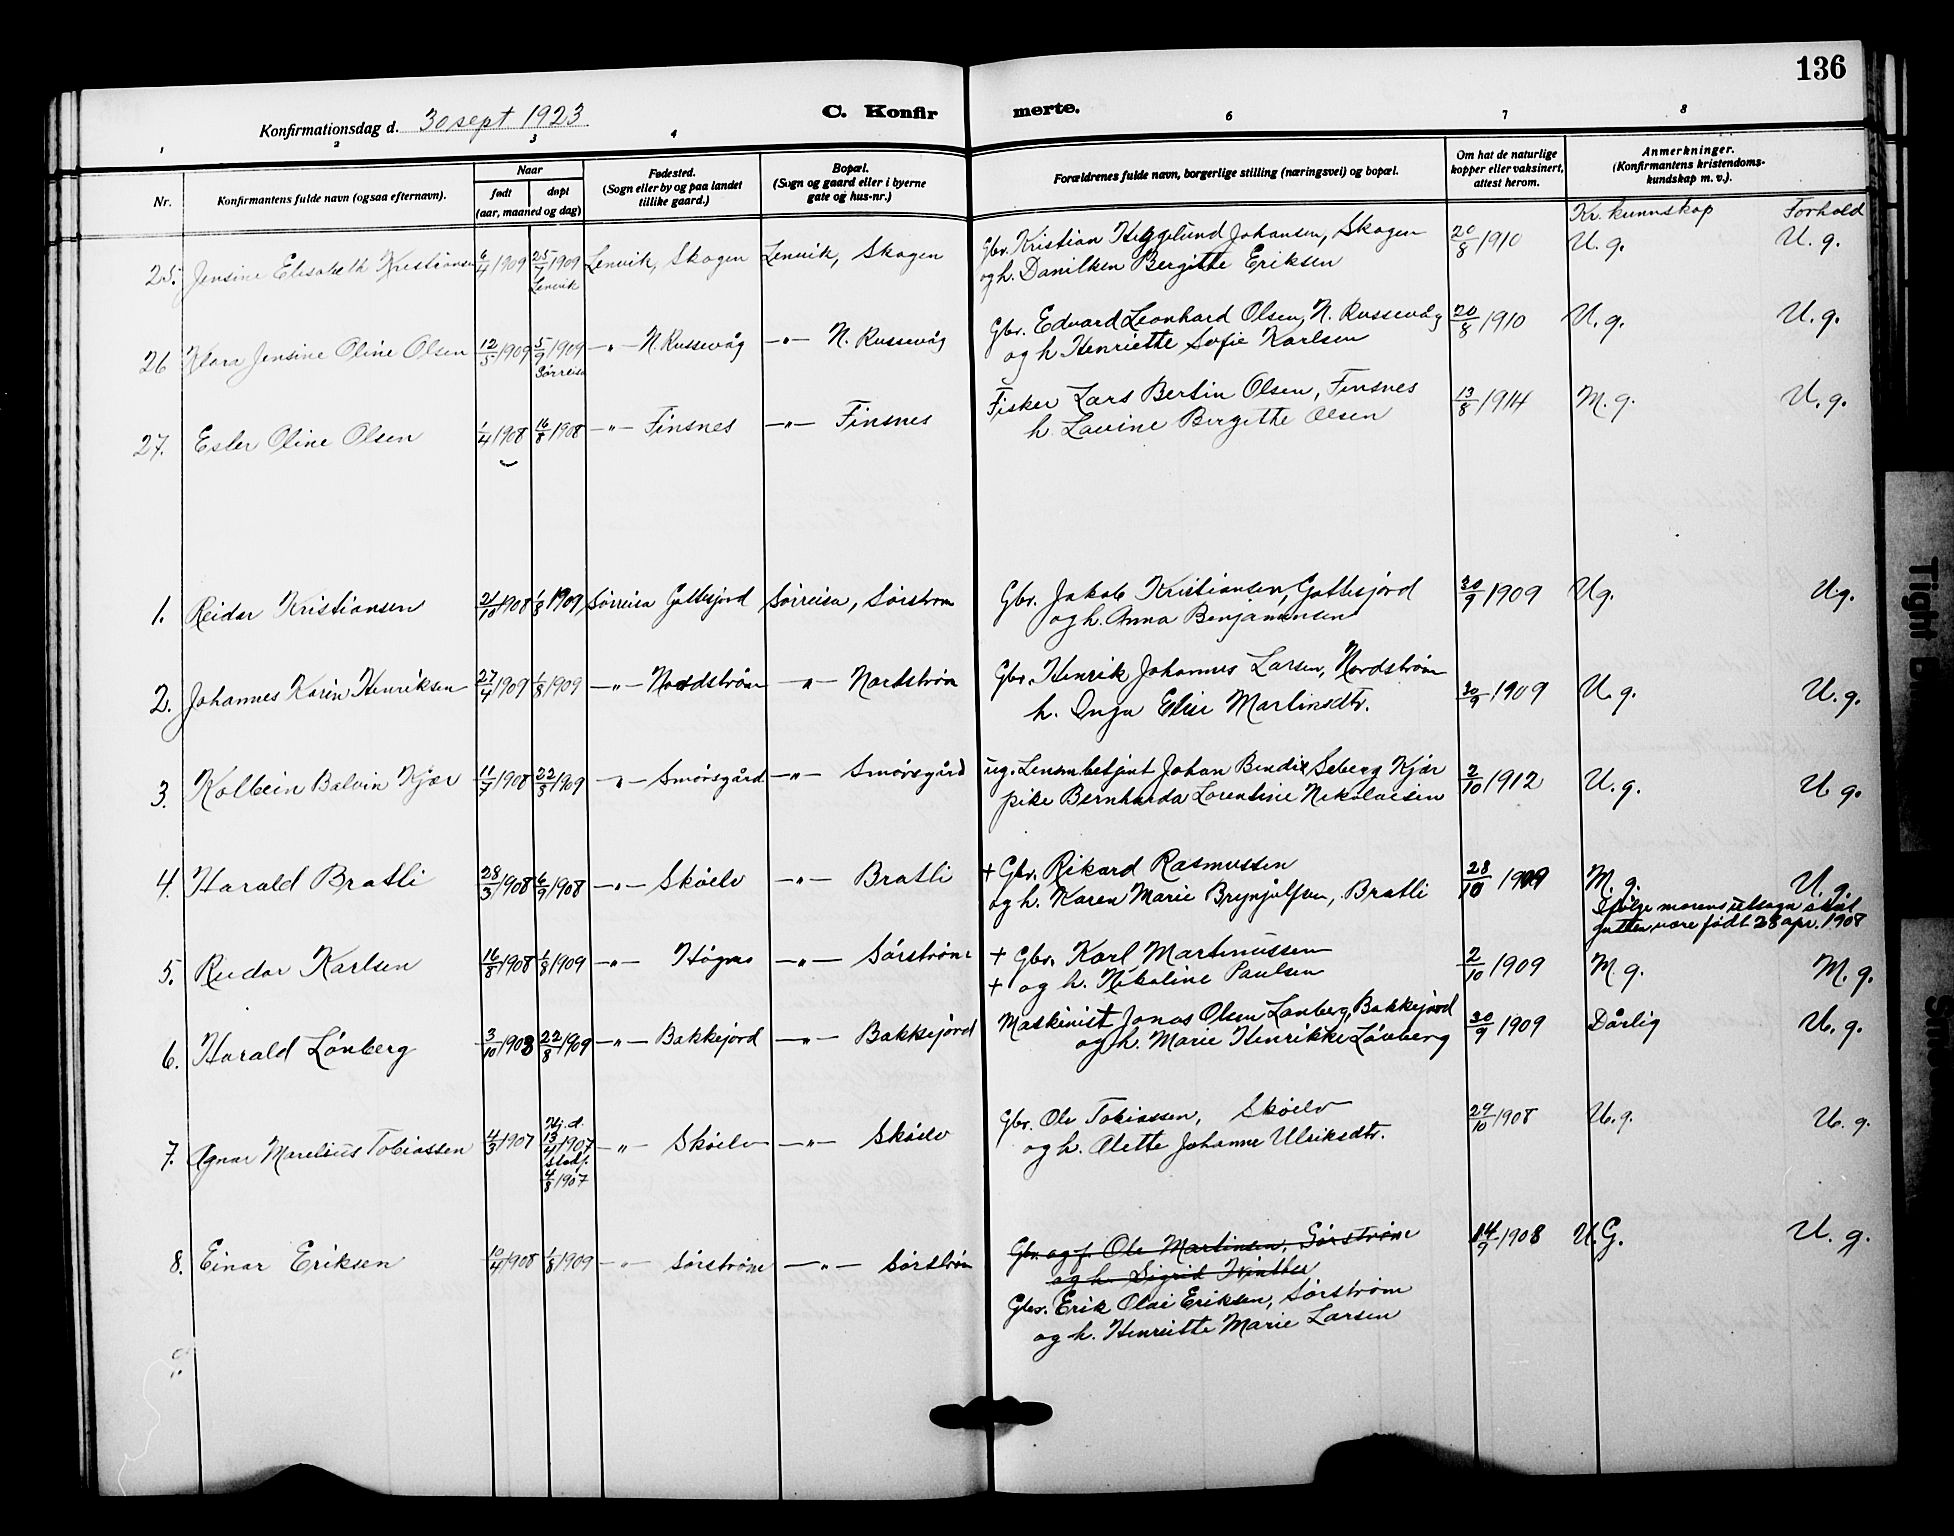 136
Konfirmationsdag d. 30 sept 1923
C. Konfirmerte.
1 2 3 4 6 7 8
Nr.
Konfirmantens fulde navn (ogsaa efternavn).
Naar
født
døpt
(aar, maaned og dag)
Fødested.
(Sogn eller by og paa landet
tillike gaard.)
Bopæl.
(Sogn og gaard eller i byerne
gate og hus-nr.)
Forældrenes fulde navn, borgerlige stilling (næringsvei) og bopæl.
Om hat de naturlige
kopper eller vaksinert,
attest herom.
Anmerkninger.
(Konfirmantens kristendoms-
kundskap m. v.).
Kr. kunnskap Forhold
25. Jensine Elisabeth Kristiansen 6/4 1909 25/7 1909 Lenvik, Skogen Lenvik, Skogen Gbr. Kristian Heggelund Johansen, Skogen 20/8 1910 U. g. U. g.
Lenvik og h. Danilken Bergitte Eriksen
26 Klara Jensine Oline Olsen 12/5 1909 5/9 1909 —"— N. Russevåg —"— N. Russevåg Gbr. Edvard Leonhard Olsen, N. Russevåg 20/8 1910 U. g. U. g.
Sørreisa og h Henriette Sofie Karlsen
27. Ester Oline Olsen 1/4 1908 16/8 1908 —"— Finsnes —"— Finsnes Fisker Lars Bertin Olsen, Finsnes 13/8 1914 M. g. U. g.
h. Lavine Bergithe Olsen
1. Reidar Kristiansen 21/10 1908 1/8 1909 Sørreisa Gottesjord Sørreisa, Sørstrøm Gbr. Jakob Kristiansen, Gottesjord 30/9 1909 Ug. Ug.
og h. Anna Benjaminsen
2. Johannes Karin Henriksen 27/4 1909 1/8 1909 —"— Nordstrøm —"— Nordstrøm Gbr. Henrik Johannes Larsen, Nordstrøm 30/9 1909 U. g. U. g.
h. Inga Elise Martinsdtr.
3. Kolbein Balvin Kjær 11/7 1908 22/5 1909 —"— Smørsgård —"— Smørsgård ug. Lensm.betjent Johan Bendix Seberg Kjær 2/10 1912 U. g. U g.
pike Bernharda Lorentine Nikolaisen
4. Harald Bratli 28/3 1908 6/9 1908 —"— Skøelv —"— Bratli + Gbr. Rikard Rasmussen 28/10 1909 M. g. U. g.
og h. Karen Marie Brynjulfsen, Bratli Ifølge morens utsagn skal
gutten være født 28 apr. 1908
5. Reidar Karlsen 16/8 1908 1/8 1909 —"— Høgmo —"— Sørstrøm + Gbr. Karl Martinussen 2/10 1909 M. g. M. g.
+ og h. Nikoline Paulsen
6. Harald Lønberg 3/10 1908 22/8 1909 —"— Bakkejord —"— Bakkejord Maskinist Jonas Olsen Lønberg, Bakkejord 30/9 1909 Dårlig U. g.
og h. Marie Henrikke Lønberg
7. Agnar Marelius Tobiassen 4/3 1907 Hj.d. 13/4 1907 stadf. 4/8 1907 —"— Skøelv —"— Skøelv Gbr. Ole Tobiassen, Skøelv 29/10 1908 U. g. U. g.
og h. Alette Johanne Ulriksdtr.
8. Einar Eriksen 10/4 1908 1/8 1909 —"— Sørstrøm —"— Sørstrøm Gbr. og f. Ole Martinsen, Sørstrøm 14/9 1908 U. G. U. g.
og h. Sigrid
Gbr. Erik Olai Eriksen, Sørstrøm
og h. Henriette Marie Larsen
9.